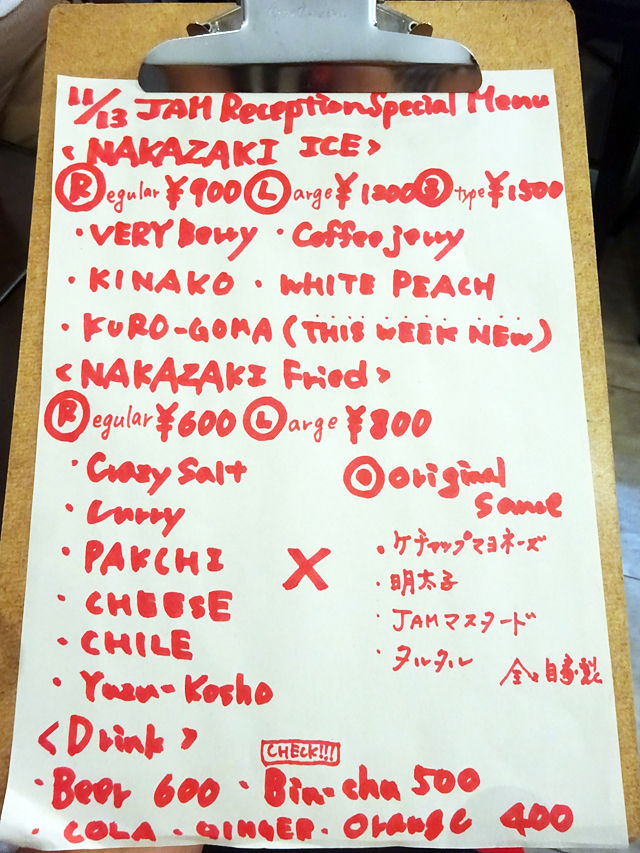 11/13 JAM Reception Special Menu
<NAKAZAKI ICE>
Regular ¥900 Large ¥1200 type ¥1500
・VERY Berry ・Coffee jerry
・KINAKO ・WHITE PEACH
・KURO-GOMA (THIS WEEK NEW)
<NAKAZAKI Fried>
Regular ¥600 Large ¥800
・Crazy Salt
・Curry
・PAKCHI
・CHEESE
・CHILE
・Yuzu-Kosho
×
Original
Sauce
・ケチャップマヨネーズ
・明太子
・JAMマスタード
・タルタル
全て自家製
<Drink>
CHECK!!!
・Beer 600 ・Bin-chu 500
・COLA ・GINGER・Orange 400